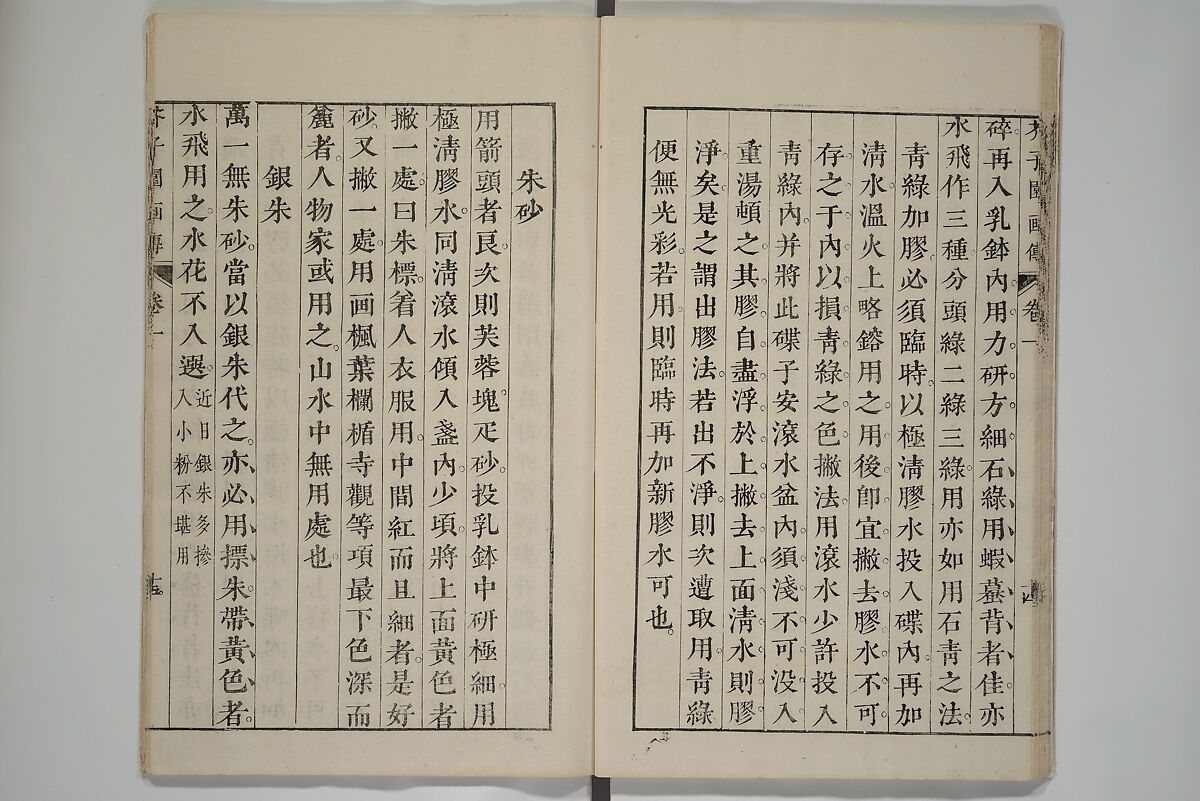 芥子園画傳 卷一
碎。再入乳鉢內。用力研方細。石綠用蝦蟇背者佳。亦
水飛作三種。分頭綠二綠三綠。用亦如用石青之法。
青綠加膠。必須臨時。以極淸膠水投入碟內。再加
淸水。溫火上略鎔用之。用後卽宜撇去膠水。不可
存之于內。以損青綠之色。撇法用滾水少許投入
青綠內。并將此碟子安滾水盆內。須淺不可没入。
重湯頓之。其膠自盡浮於上。撇去上面淸水。則膠
淨矣。是之謂出膠法。若出不淨。則次遭取用。青綠
便無光彩。若用則臨時再加新膠水可也。
朱砂
用箭頭者良。次則芙蓉塊疋砂。投乳鉢中研極細。用
極淸膠水。同淸滾水傾入盞內。少項將上面黃色者
撇一處。曰朱標。着人衣服用。中間紅而且細者。是好
砂。又撇一處。用画楓葉欄楯寺觀等項。最下色深而
麄者。人物家或用之。山水中無用處也。
銀朱
萬一無朱砂。當以銀朱代之。亦必用摽朱。帶黃色者。
水飛用之。水花不入選。近日銀朱多摻
入小粉不堪用
芥子園画傳 卷一